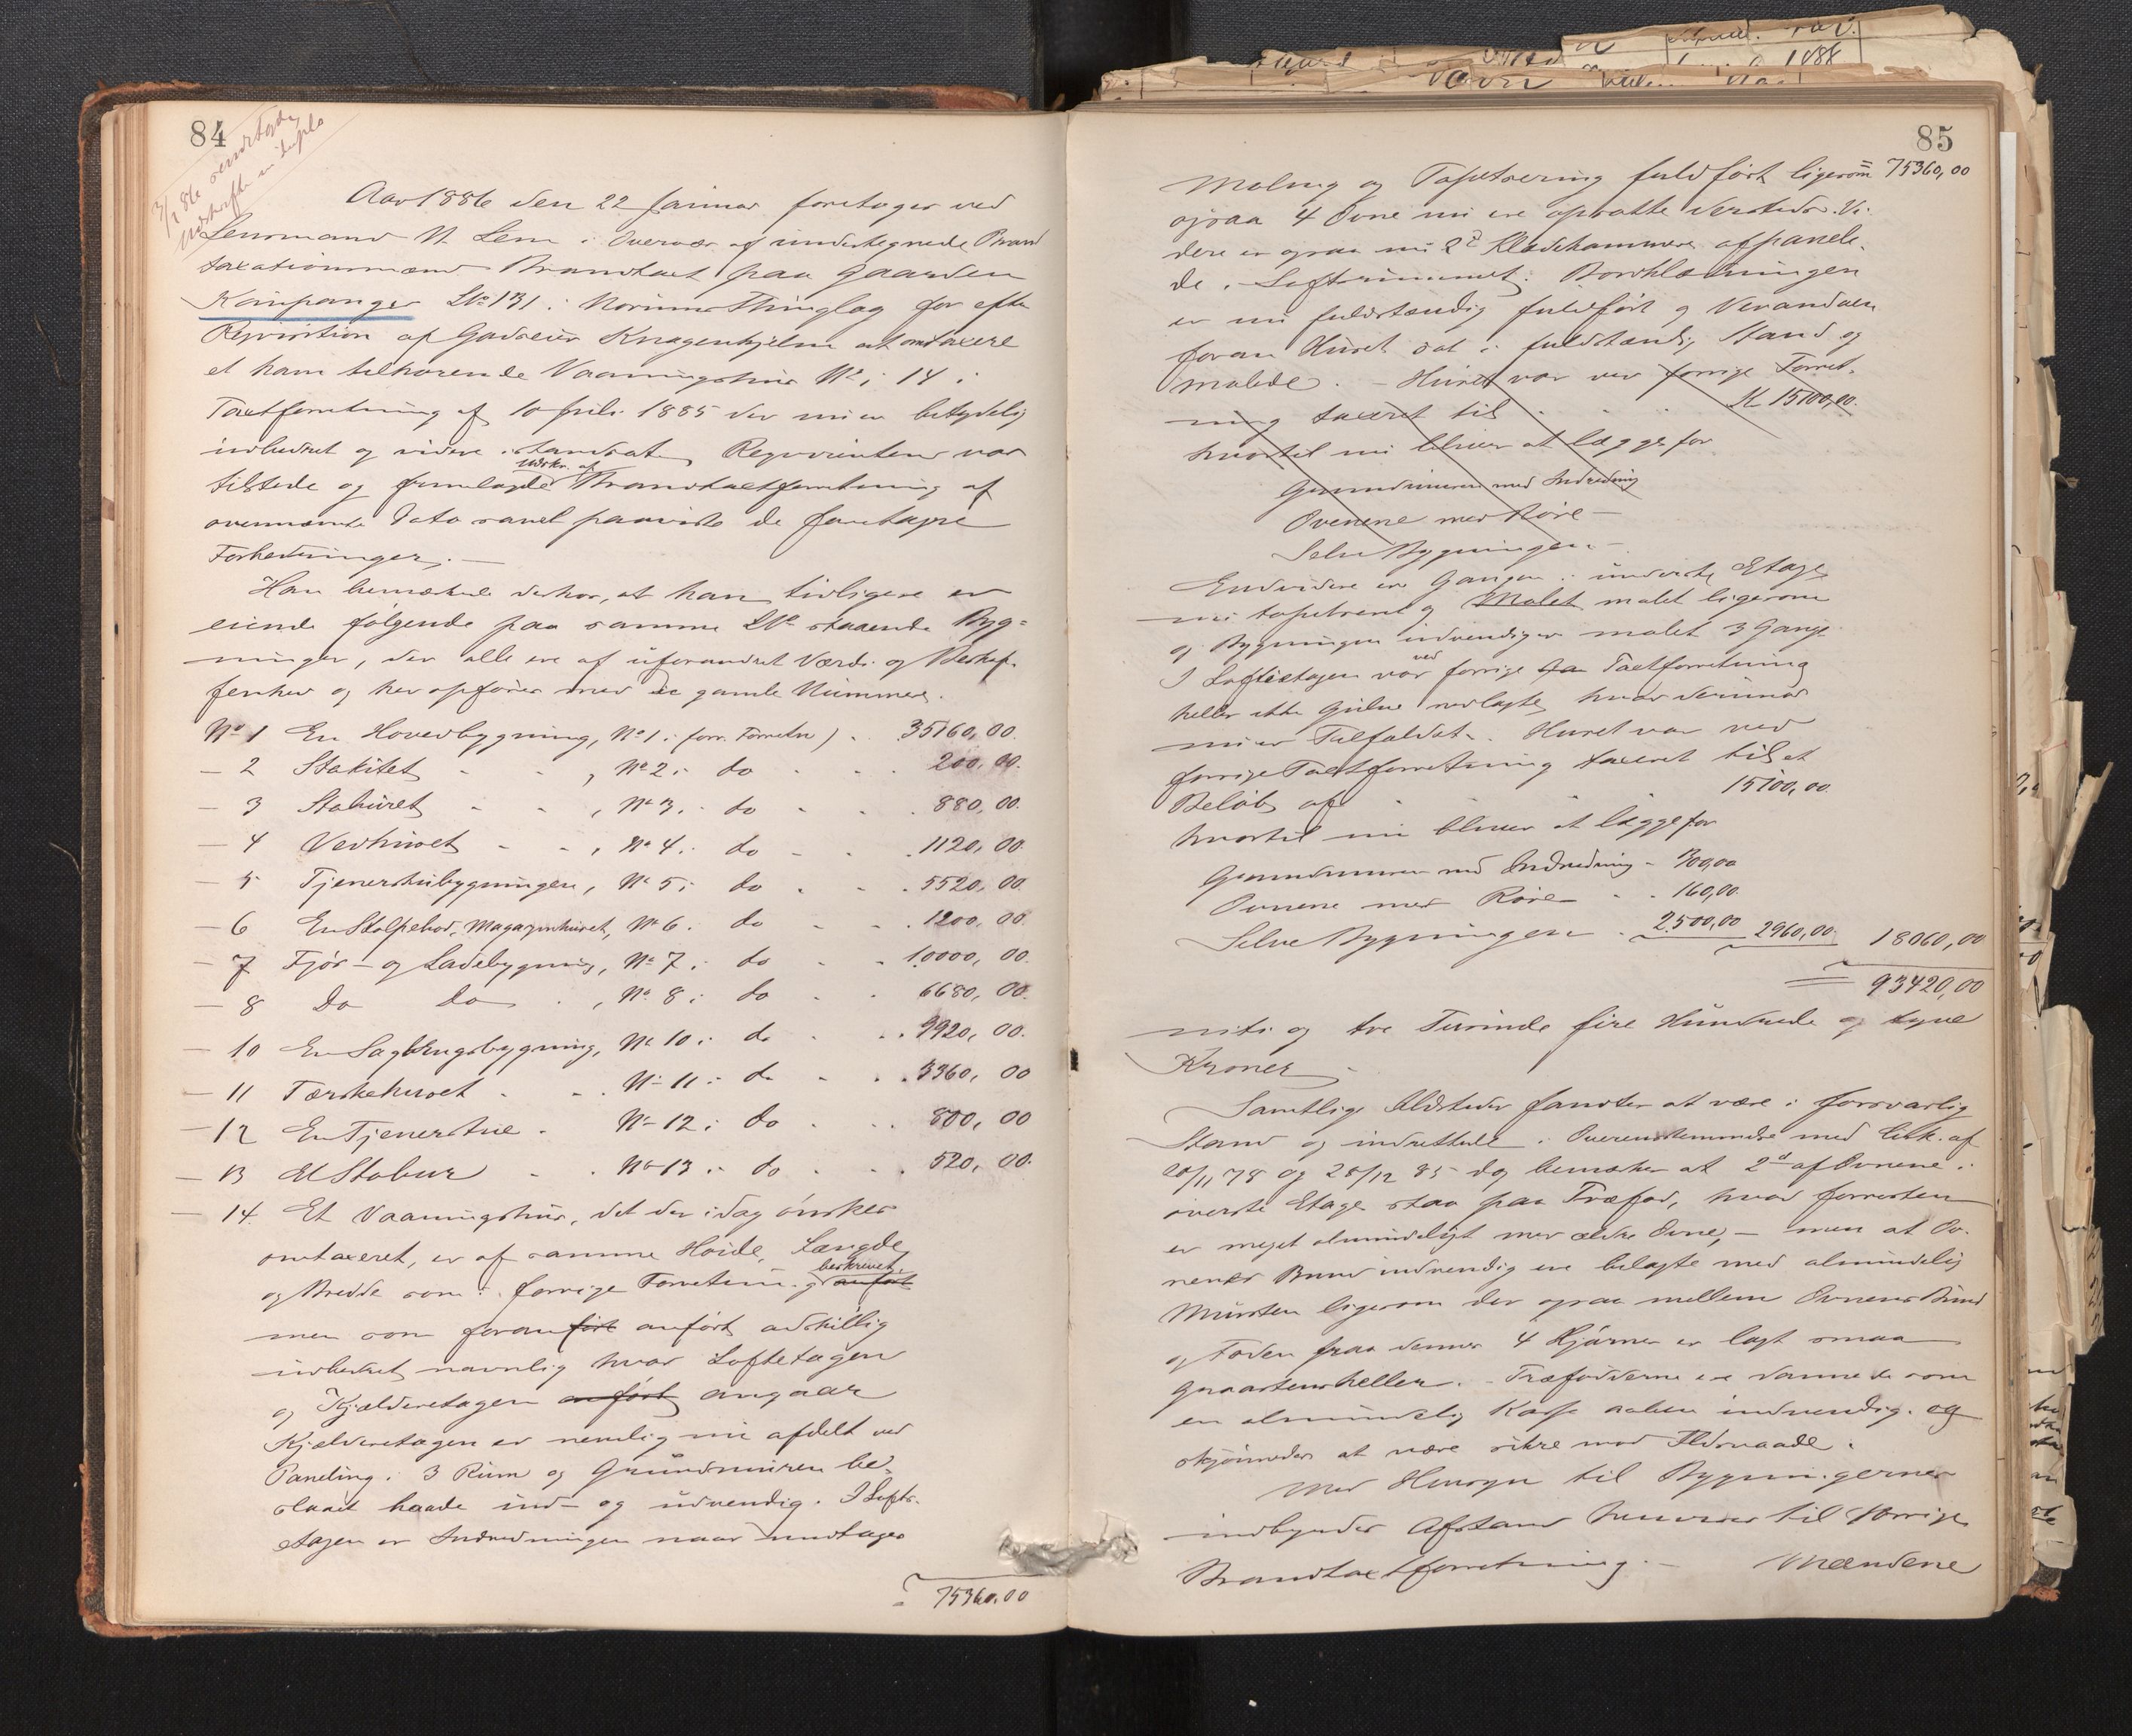 84
3/2 86 sendt
Udskrifter in duplo
Aar 1886 den 22 Januar foretoges ved
Lensmand N. Lem i Overvær af undertegnede Brand
taxationsmænd Brandtaxt paa Gaarden
Kaupanger LNo 131 i Norums Thinglag for efter
Reqvisition af Godseier Knagenhjelm at omtaxere
et ham tilhørende Vaaningshus No 14 i
Taxtforretning af 10 Juli 1885 der nu er betydelig
udbedret og videre istandsat. Reqvirenten var
tilstede og fremlagde Udskr. af Brandtaxtforretning af
ovennævnte Dato samt paaviste de foretagne
Forbedringer. —
Han bemærkede derhos, at han tidligere er
eiende følgende paa samme LNo staaende Byg=
ninger, der alle ere af uforandret Værdi og Beskaf-
fenhed og her opføres med de gamle Nummere.
No 1 En Hovedbygning, No 1 i forr. Forretn) . 35160,00.
— 2 Stakitet - - , No 2 i do . . . 200,00.
— 3 Staburet - - , No 3 i do . . . 880,00.
— 4 Vedhuset - - , No 4 i do - . . 1120,00.
— 5 Tjenerskabygningen, No 5 i do . . . 5520,00.
— 6 En Stolpebod, Magazinhuset, No 6 i do - . . 1200,00.
— 7 Fjøs- og Ladebygning, No 7 i do - . 10000,00.
— 8 Do do . , No 8 i do . . 6680,00.
— 10 En Sagbrugsbygning, No 10 i do . . 9920,00.
— 11 Tærskehuset . . . No 11 i do . . 3360,00
— 12 En Tjenerstue . No 12 i do . . . 800,00
— 13 Et Stabur - . No 13 i do . . . 520,00.
— 14. Et Vaaningshus, det der i dag ønskes
omtaxeret, er af samme Høide, Længde
og Bredde som i forrige Forretning anført beskrevet,
men som foran ført anført adskillig
udbedret navnlig hvad Loftetagen
og Kjælderetagen anført angaar
Kjælderetagen er nemlig nu afdelt ved
Paneling i 3 Rum og Grundmuren be-
slaaet baade ind- og udvendig. I Lofts-
etagen er Indredningen naar undtages
75360,00
85
Maling og Tapetsering fuldført ligesom = 75360,00
ogsaa 4 Ovne nu ere opsatte dersteds. Vi-
dere er ogsaa nu 2de Klædekammere afpanele-
de i Loftrummet. Bordklædningen
er nu fuldstændig fuldført og Verandaen
foran Huset sat i fuldstændig Stand og
malede. — Huset var ved forrige Forret-
ning taxeret til . . . Kr 15100,00.
hvortil nu bliver at lægge for
Grundmuren med Indredning
Ovenene med Røre —
Selve Bygningen —
Endvidere ere Gangen i underste Etage
nu tapetseret og Malet malet ligesom
og Bygningen udvendig er malet 3 Gange
I Loftsetagen var ved forrige Taxtforretning
heller ikke Gulve nedlagte, hvad derimod
nu er Tilfældet. Huset var ved
forrige Taxtforretning taxeret til et
Beløb af . . . 15100,00.
hvortil nu bliver at lægge for
Grundmuren med Indredning - 300,00
Ovnene med Røre — . . 160,00.
Selve Bygningen . 2500,00 2960,00. 18060,00
= 93420,00
niti og tre Tusinde fire Hundrede og tyve
Kroner
Samtlige Ildsteder fandtes at være i forsvarlig
Stand og indrettede i Overensstemmelse med Cirk. af
20/11 78 og 28/12 85 dog bemærkes at 2de af Ovnene i
øverste Etage staa paa Træfod, hvad forresten
er meget almindeligt med ældre Ovne, — men at Ov-
nenes Bund indvendig ere belagte med almindelig
Mursten ligesom der ogsaa mellem Ovnens Bund
og Foden paa dennes 4 Hjørner er lagt smaa
Graastensheller. — Træfødderne ere dannede som
en almindelig Kasse aaben indvendig. og
skjønnedes at være sikre mod Ildsvaade.
Med Hensyn til Bygningernes
indbyrdes Afstand henvises til forrige
Brandtaxtforretning. — Mændene